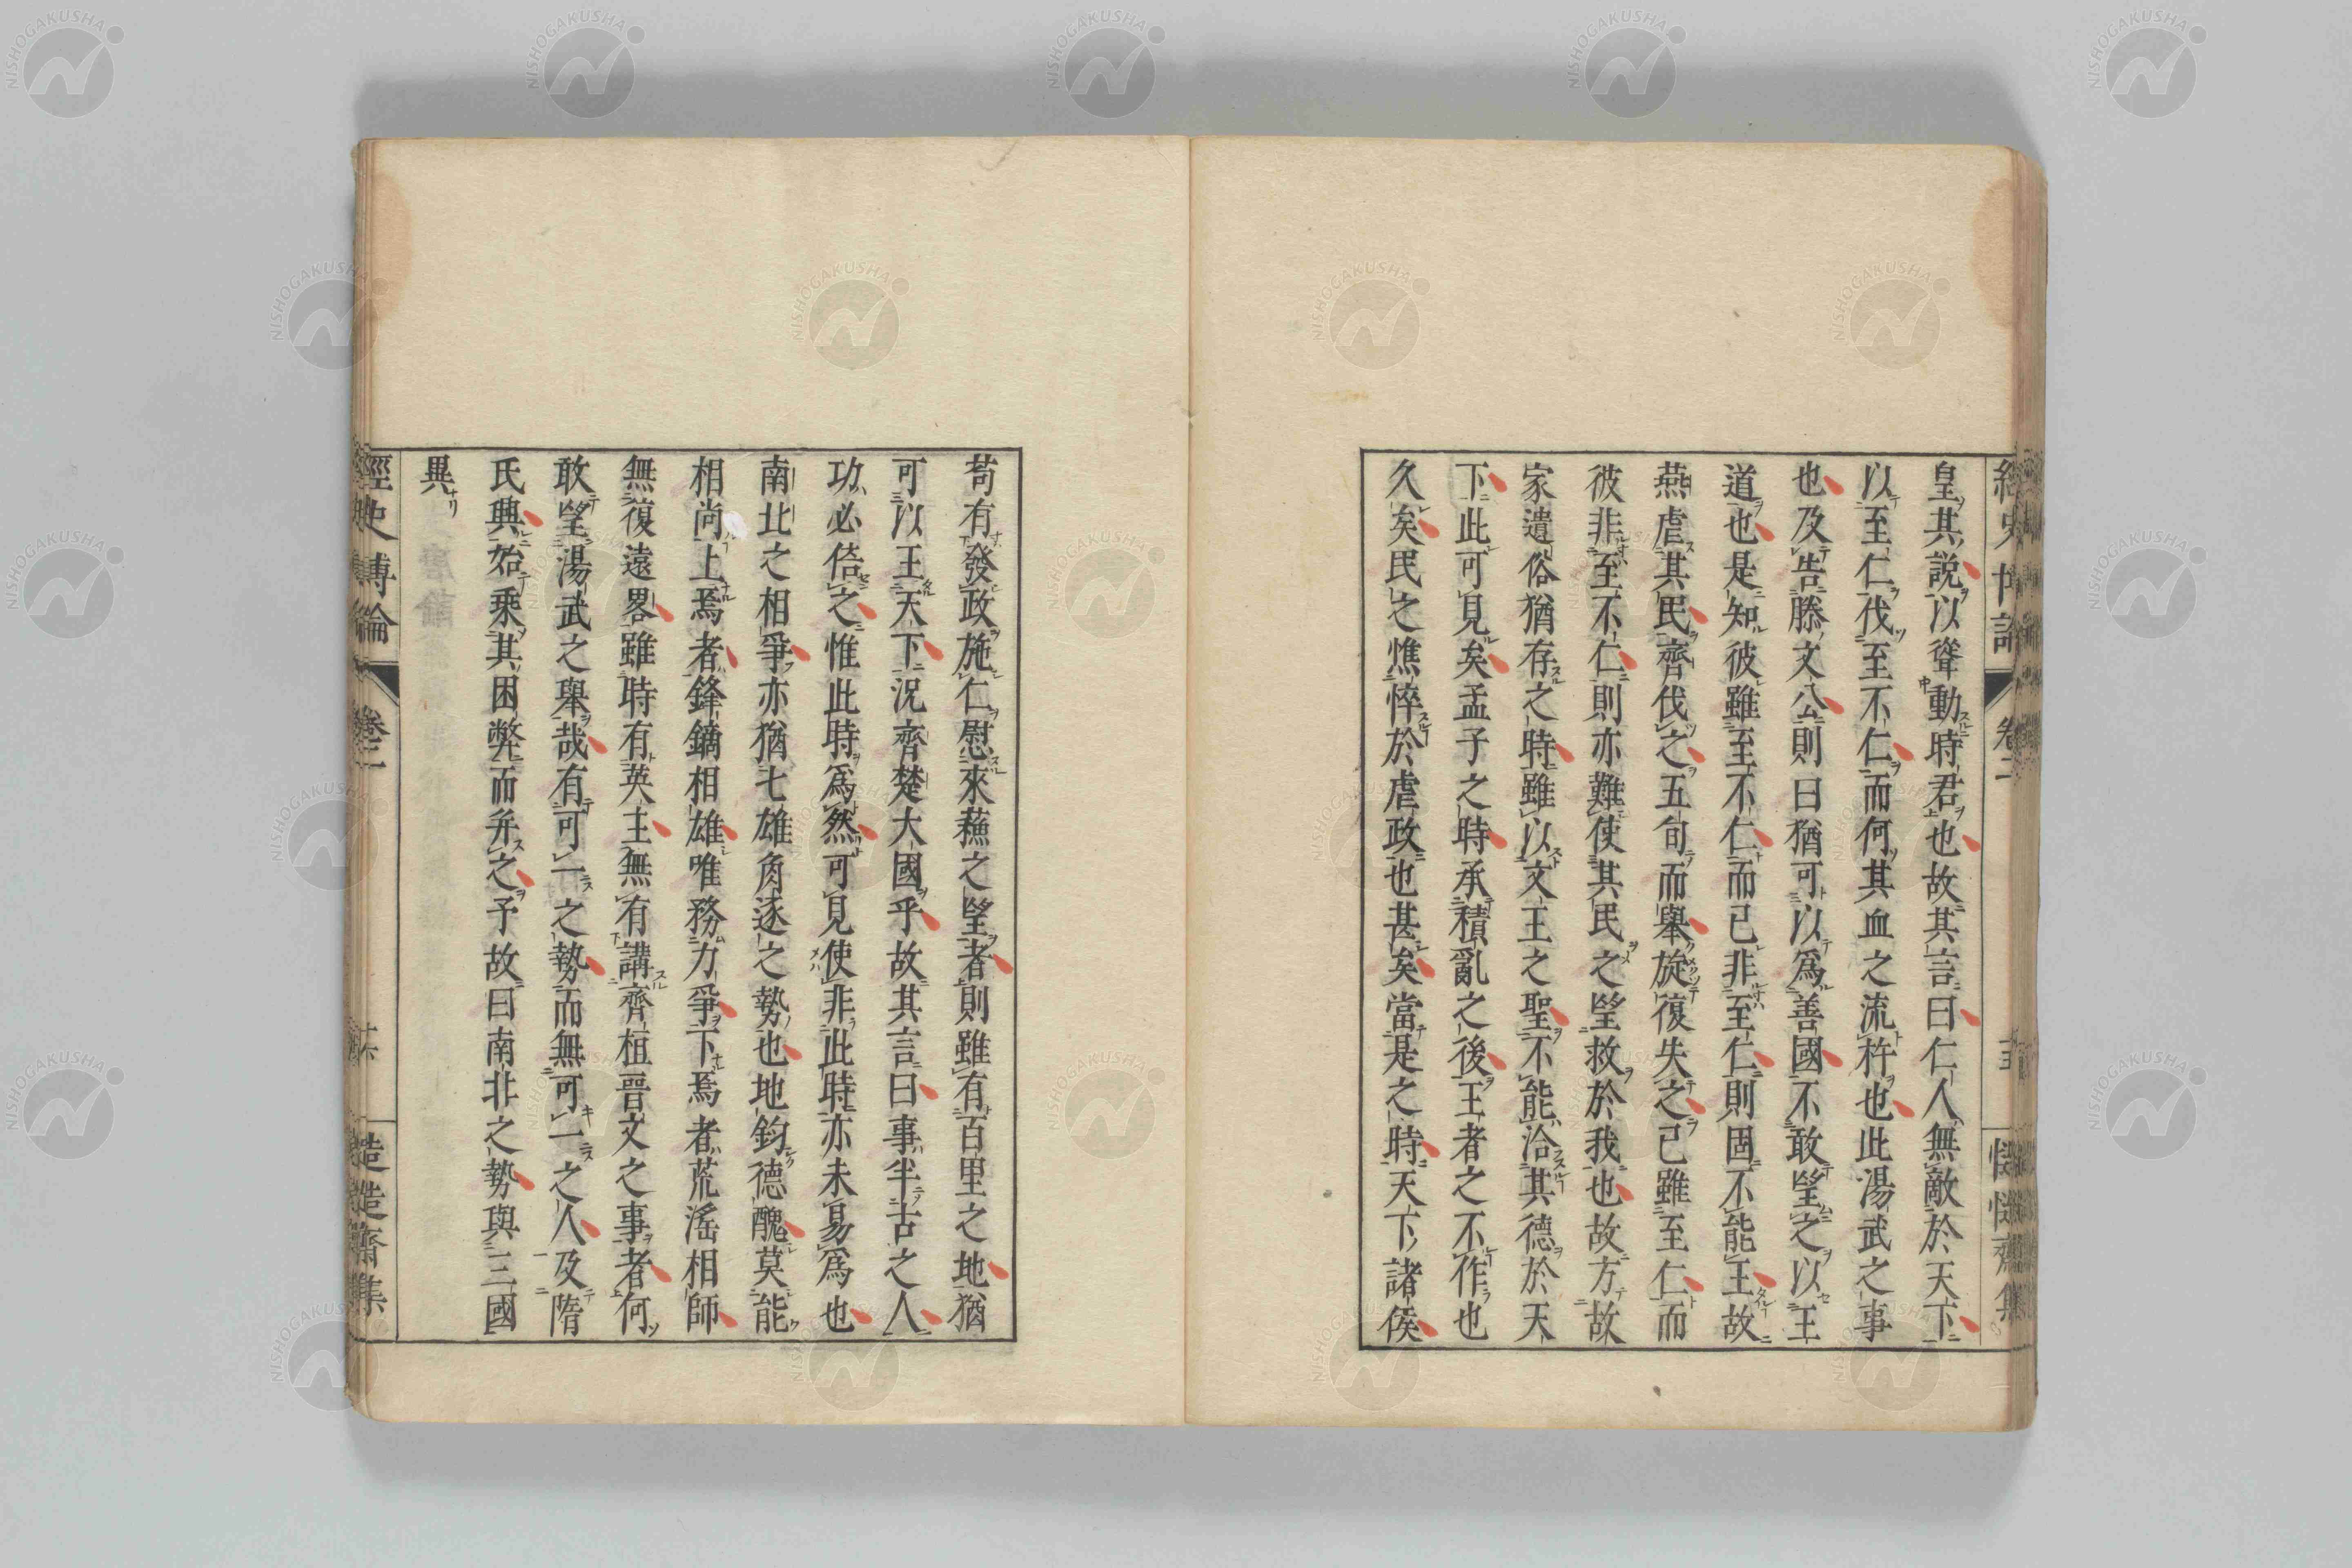 皇其説以聳動時君也故其言曰仁人無敵於天下
以至仁伐至不仁而何其血之流杵也此湯武之事
也及告滕文公則曰猶可以爲善國不敢望之以王
道也是知彼雖至不仁而已非至仁則固不能王故
燕虐其民齊伐之五旬而舉旋復失之已雖至仁而
彼非至不仁則亦難使其民之望救於我也故方故
家遺俗猶存之時雖以文王之聖不能洽其德於天
下此可見矣孟子之時承積亂之後王者之不作也
久矣民之憔悴於虐政也甚矣當是之時天下諸侯
苟有發政施仁慰來蘇之望者則雖有百里之地猶
可以王天下況齊楚大國乎故其言曰事半古之人
功必倍之惟此時爲然可見使非此時亦未易爲也
南北之相爭亦猶七雄角逐之勢也地鈞德醜莫能
相尚上焉者鋒鏑相雄唯務力爭下焉者荒淫相師
無復遠畧雖時有英主無有講齊桓晉文之事者何
敢望湯武之舉哉有可一之勢而無可一之人及隋
氏興始乘其困弊而并之予故曰南北之勢與三國
異
經史博論
卷二
十六
慥慥齋集
NISHOGAKUSHA